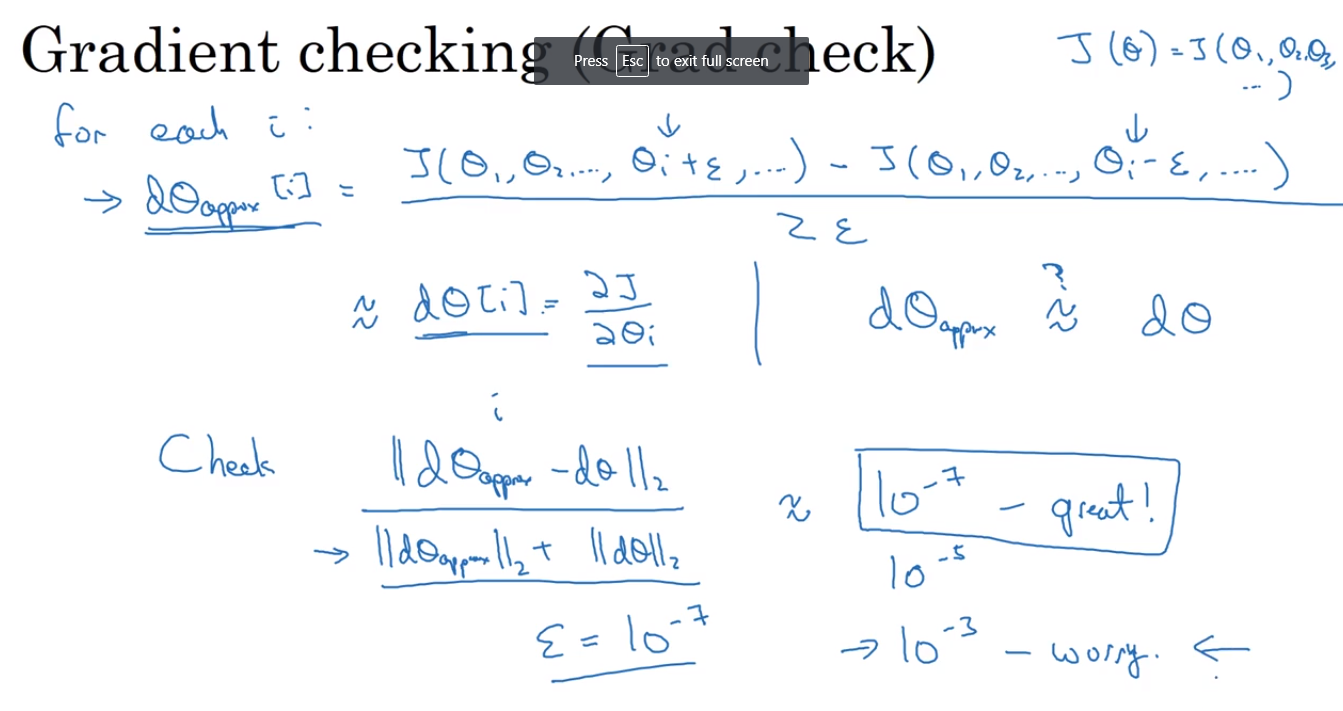 Gradient checking (Grad check)
Press Esc to exit full screen
J(θ) = J(θ₁, θ₂, θ₃, ...)
for each i:
→ dθapprox[i] = (J(θ₁, θ₂, ..., θᵢ+ε, ...) - J(θ₁, θ₂, ..., θᵢ-ε, ...)) / 2ε
≈ dθ[i] = ∂J/∂θᵢ | dθapprox ≈? dθ
i
Check ||dθapprox - dθ||₂ / (||dθapprox||₂ + ||dθ||₂) ≈ 10⁻⁷ - great!
→
10⁻⁵
ε = 10⁻⁷ → 10⁻³ - worry. ←